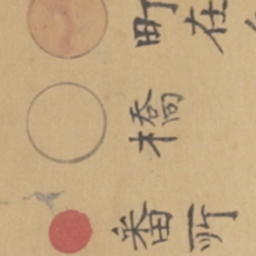 町在
橋
番所